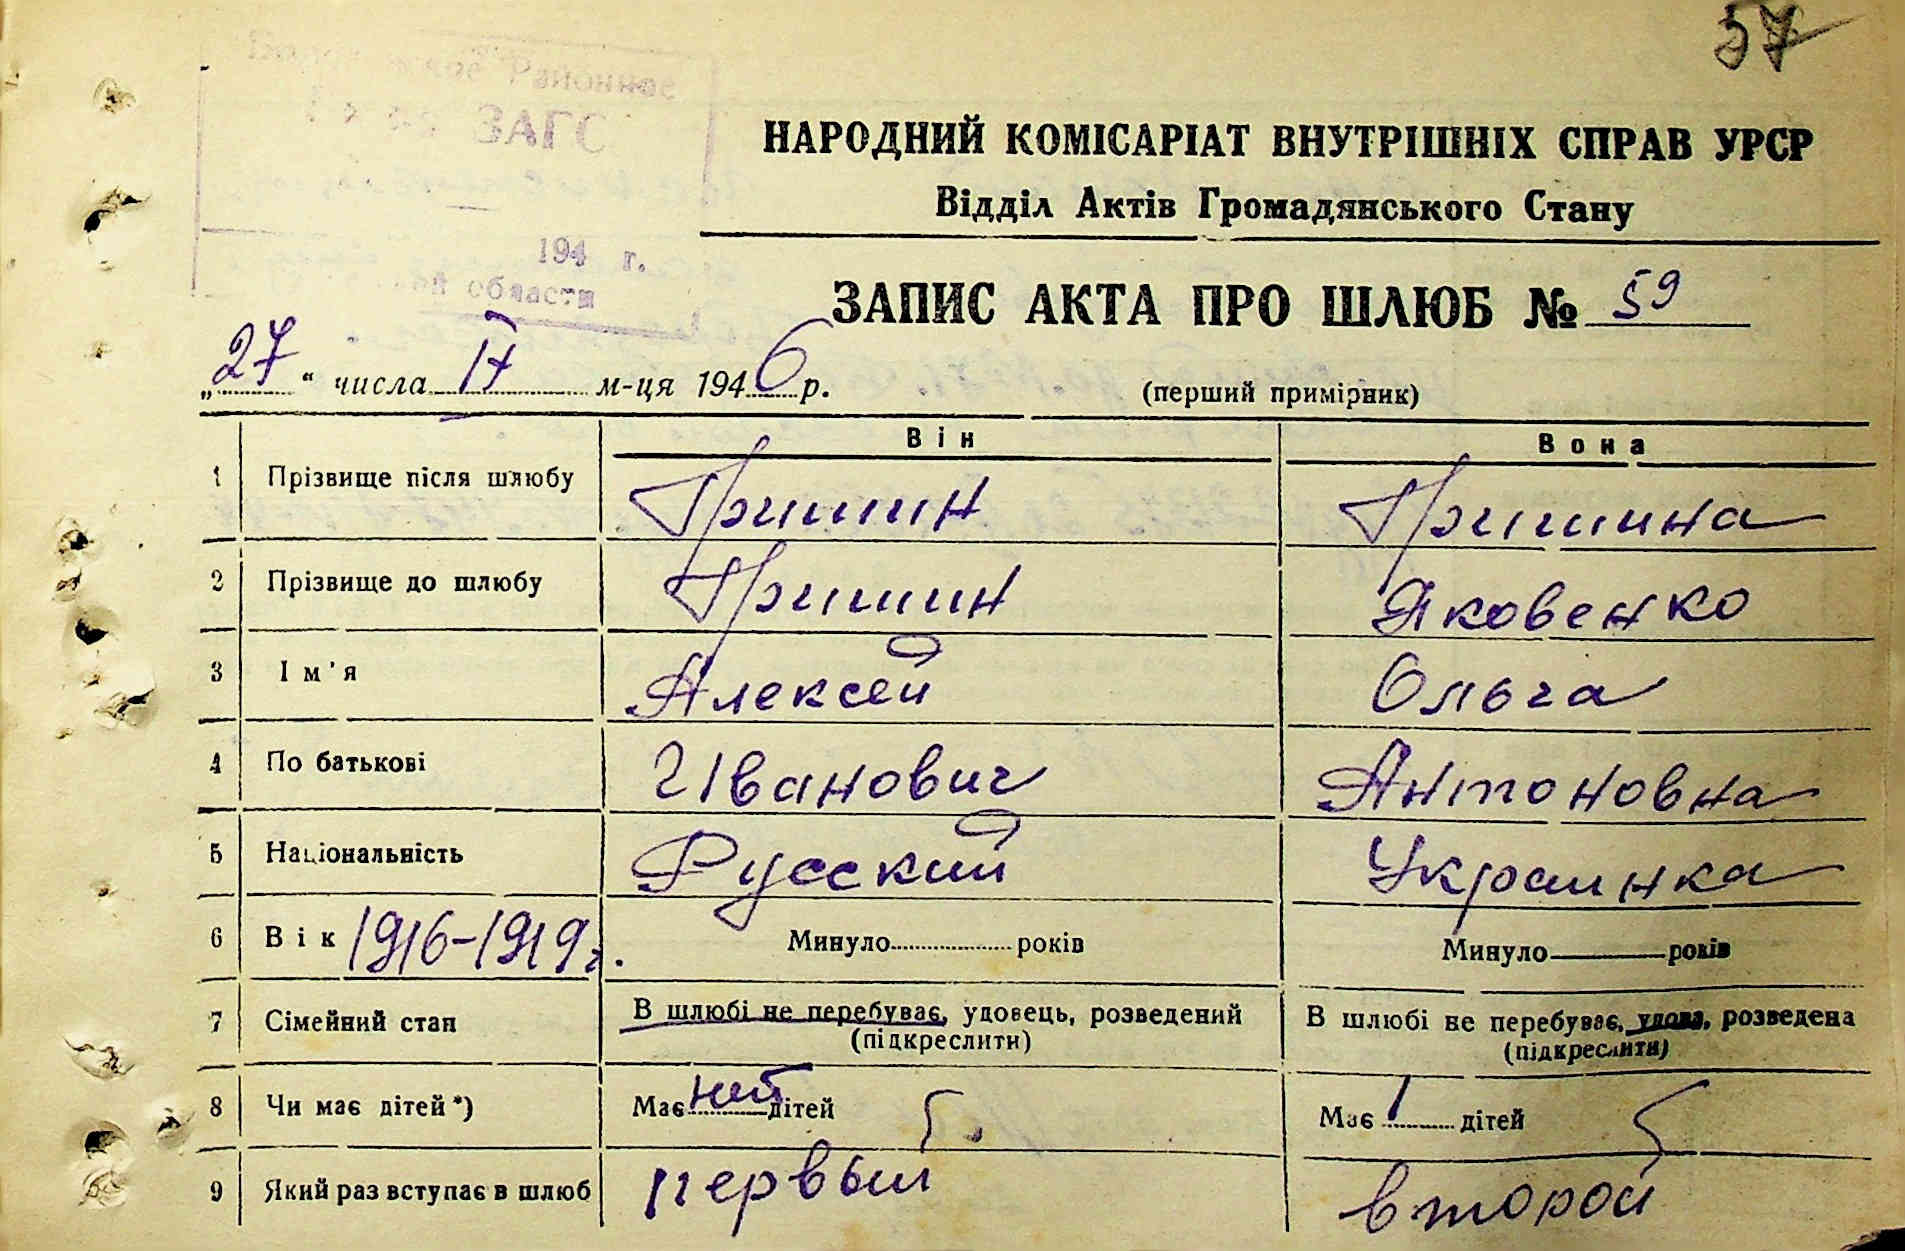 57
Районное
ЗАГС
194 г.
области
НАРОДНИЙ КОМІСАРІАТ ВНУТРІШНІХ СПРАВ УРСР
Відділ Актів Громадянського Стану
ЗАПИС АКТА ПРО ШЛЮБ № 59
„27“ числа IV м-ця 1946 р. (перший примірник)
Він Вона
1 Прізвище після шлюбу Гришин Гришина
2 Прізвище до шлюбу Гришин Яковенко
3 Ім'я Алексей Ольга
4 По батькові Иванович Антоновна
5 Національність Русский Украинка
6 Вік 1916-1919г. Минуло.....років Минуло.....років
7 Сімейний стан В шлюбі не перебуває, удовець, розведений В шлюбі не перебуває, удова, розведена
(підкреслити) (підкреслити)
8 Чи має дітей*) Має нет дітей Має 1 дітей
9 Який раз вступає в шлюб первый второй